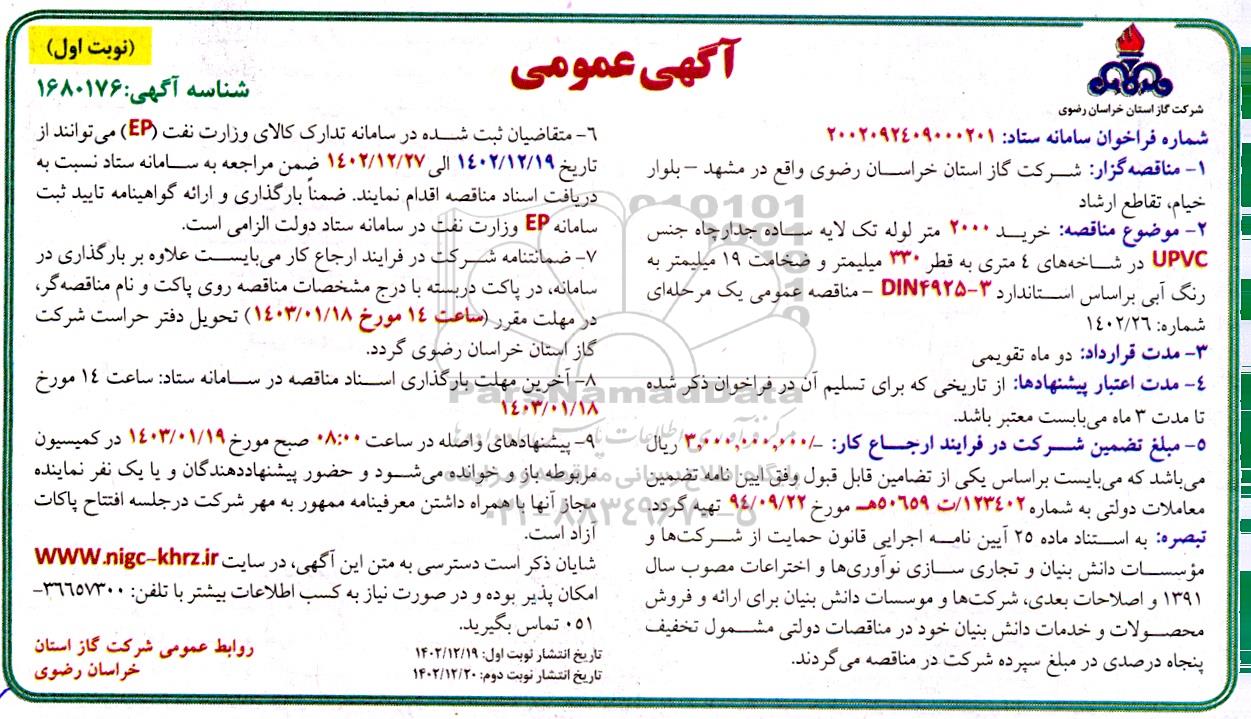 (نوبت اول)
شناسه آگهی:۱۶۸۰۱۷۶
آگهی عمومی
شرکت گاز استان خراسان رضوی
شماره فراخوان سامانه ستاد: ۲۰۰۲۰۹۲۴۰۹۰۰۰۲۰۱
۱- مناقصه‌گزار: شرکت گاز استان خراسان رضوی واقع در مشهد – بلوار
خیام، تقاطع ارشاد
۲- موضوع مناقصه: خرید ۲۰۰۰ متر لوله تک لایه ساده جدارچاه جنس
UPVC در شاخه‌های ٤ متری به قطر ۳۳۰ میلیمتر و ضخامت ۱۹ میلیمتر به
رنگ آبی براساس استاندارد DIN۴۹۲۵-۳ – مناقصه عمومی یک مرحله‌ای
شماره: ۱۴۰۲/۲٦
۳- مدت قرارداد: دو ماه تقویمی
٤- مدت اعتبار پیشنهادها: از تاریخی که برای تسلیم آن در فراخوان ذکر شده
تا مدت ۳ ماه می‌بایست معتبر باشد.
۵- مبلغ تضمین شرکت در فرایند ارجاع کار: -/۳,۰۰۰,۰۰۰,۰۰۰ ریال
می‌باشد که می‌بایست براساس یکی از تضامین قابل قبول وفق آیین نامه تضمین
معاملات دولتی به شماره ۱۲۳٤۰۲/ت ۵۰٦۵۹هـ مورخ ۹٤/۰۹/۲۲ تهیه گردد.
تبصره: به استناد ماده ۲۵ آیین نامه اجرایی قانون حمایت از شرکت‌ها و
مؤسسات دانش بنیان و تجاری سازی نوآوری‌ها و اختراعات مصوب سال
۱۳۹۱ و اصلاحات بعدی، شرکت‌ها و موسسات دانش بنیان برای ارائه و فروش
محصولات و خدمات دانش بنیان خود در مناقصات دولتی مشمول تخفیف
پنجاه درصدی در مبلغ سپرده شرکت در مناقصه می‌گردند.
٦- متقاضیان ثبت شده در سامانه تدارک کالای وزارت نفت (EP) می‌توانند از
تاریخ ۱٤۰۲/۱۲/۱۹ الی ۱٤۰۲/۱۲/۲۷ ضمن مراجعه به سامانه ستاد نسبت به
دریافت اسناد مناقصه اقدام نمایند. ضمناً بارگذاری و ارائه گواهینامه تایید ثبت
سامانه EP وزارت نفت در سامانه ستاد دولت الزامی است.
۷- ضمانتنامه شرکت در فرایند ارجاع کار می‌بایست علاوه بر بارگذاری در
سامانه، در پاکت دربسته با درج مشخصات مناقصه روی پاکت و نام مناقصه‌گر،
در مهلت مقرر (ساعت ۱٤ مورخ ۱٤۰۳/۰۱/۱۸) تحویل دفتر حراست شرکت
گاز استان خراسان رضوی گردد.
۸- آخرین مهلت بارگذاری اسناد مناقصه در سامانه ستاد: ساعت ۱٤ مورخ
۱٤۰۳/۰۱/۱۸
۹- پیشنهادهای واصله در ساعت ۰۸:۰۰ صبح مورخ ۱٤۰۳/۰۱/۱۹ در کمیسیون
مربوطه باز و خوانده می‌شود و حضور پیشنهاددهندگان و یا یک نفر نماینده
مجاز آنها با همراه داشتن معرفینامه ممهور به مهر شرکت درجلسه افتتاح پاکات
آزاد است.
شایان ذکر است دسترسی به متن این آگهی، در سایت WWW.nigc-khrz.ir
امکان پذیر بوده و در صورت نیاز به کسب اطلاعات بیشتر با تلفن: ۳٦٦۵۷۳۰۰-
۰۵۱ تماس بگیرید.
تاریخ انتشار نوبت اول: ۱۴۰۲/۱۲/۱۹
تاریخ انتشار نوبت دوم: ۱۴۰۲/۱۲/۲۰
روابط عمومی شرکت گاز استان
خراسان رضوی
ParsNamadData
۰۲۱-۸۸۳۴۹۶۷۰-۵